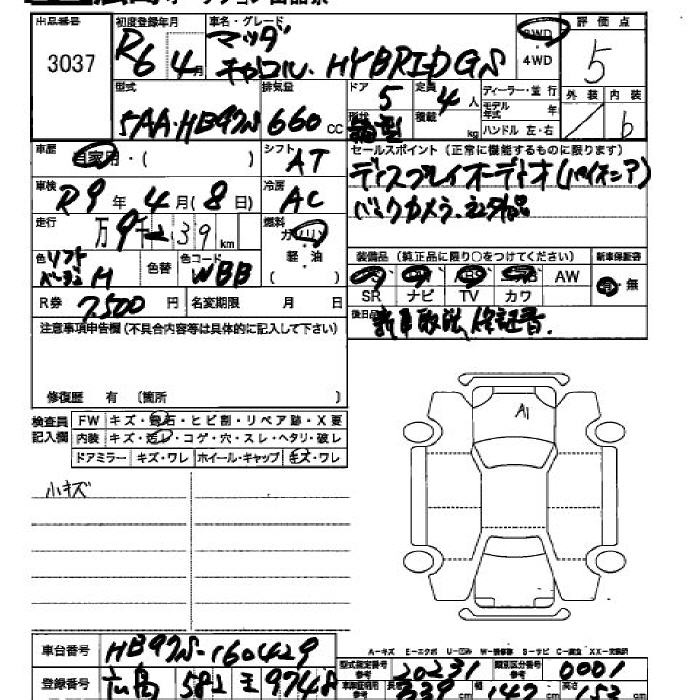 出品番号 初度登録年月 車名・グレード 評価点
3037 R6年4月 マツダ 2WD 5
キャロル HYBRID GS 4WD
型式 排気量 ドア 定員 ディーラー・並行 外装 内装
5AA・HB97S 660cc 5 4人 モデル年式 年 b
形状 積載 kg ハンドル 左・右
車歴 自家用・( ) シフト AT セールスポイント(正常に機能するものに限ります)
車検 R9年4月(8日) 冷房 AC ディスプレイオーディオ(パイオニア)
バックカメラ.
走行 万9千239km 燃料 ガソリン 軽・油
色 ソフトベージュM 色替 色コード WBB
装備品(純正品に限り○をつけてください) 新車保証書
AW 有・無
SR ナビ TV カワ
R券 7,500円 名変期限 月 日 後日品
新車取説,保証書.
注意事項申告欄(不具合内容等は具体的に記入して下さい)
修復歴 有 〔箇所 〕
検査員記入欄 FW キズ・飛石・ヒビ割・リペア跡・X要
内装 キズ・汚レ・コゲ・穴・スレ・ヘタリ・破レ
ドアミラー キズ・ワレ ホイール・キャップ キズ・ワレ
小キズ
A1
A-キズ E-エクボ
車台番号 HB97S-160429
型式指定番号 参考 20231 類別区分番号 参考 0001
登録番号 広島 582 え 9748
長さ 339cm 幅 147cm 高さ 152cm